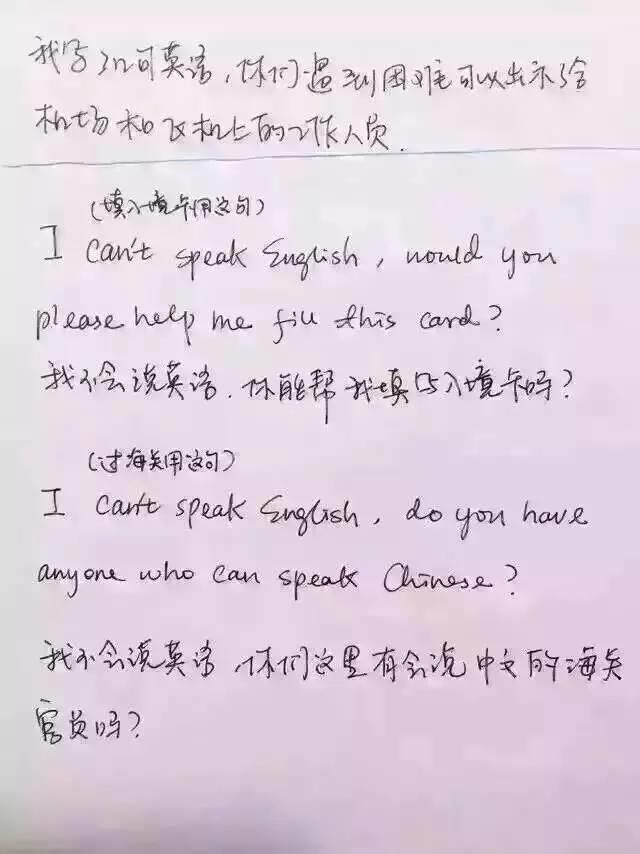 我写了几句英语，你们遇到困难可以出示给
机场和飞机上的工作人员.
(填入境卡用这句)
I can't speak English, would you
please help me fill this card?
我不会说英语. 你能帮我填写入境卡吗?
(过海关用这句)
I can't speak English, do you have
anyone who can speak Chinese?
我不会说英语，你们这里有会说中文的海关
官员吗?